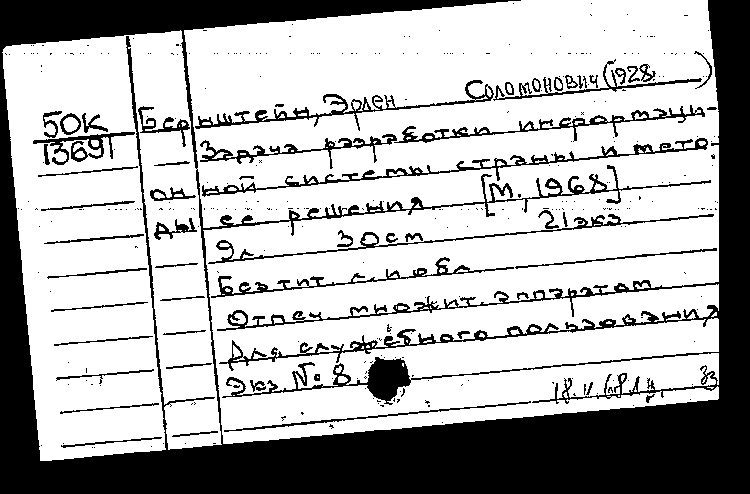 50К
13691
Бернштейн, Эрлен Соломонович (1928 )
Задача разработки информаци-
онной системы страны и мето-
ды ее решения [М., 1968]
9л. 30 см 21 экз
Без тит. л. и обл.
Отпеч. множит. аппаратом.
Для служебного пользования
Экз. № 8.